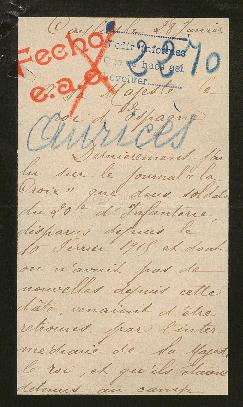 Fecho
e.a.e.
Pedir informes
que se hace así
devolver
2270
Majesté le
Roi d'Espagne
Auricès
Dernièrement j'ai
lu sur le journal "la
Croix" que deux soldats
du 20e d'Infanterie,
disparus depuis le
10 Février 1915 et dont
on n'avait pas de
nouvelles depuis cette
date, venaient d'être
retrouvés par l'inter
médiaire de Sa Majesté
le roi, et qu'ils étaient
détenus au camp